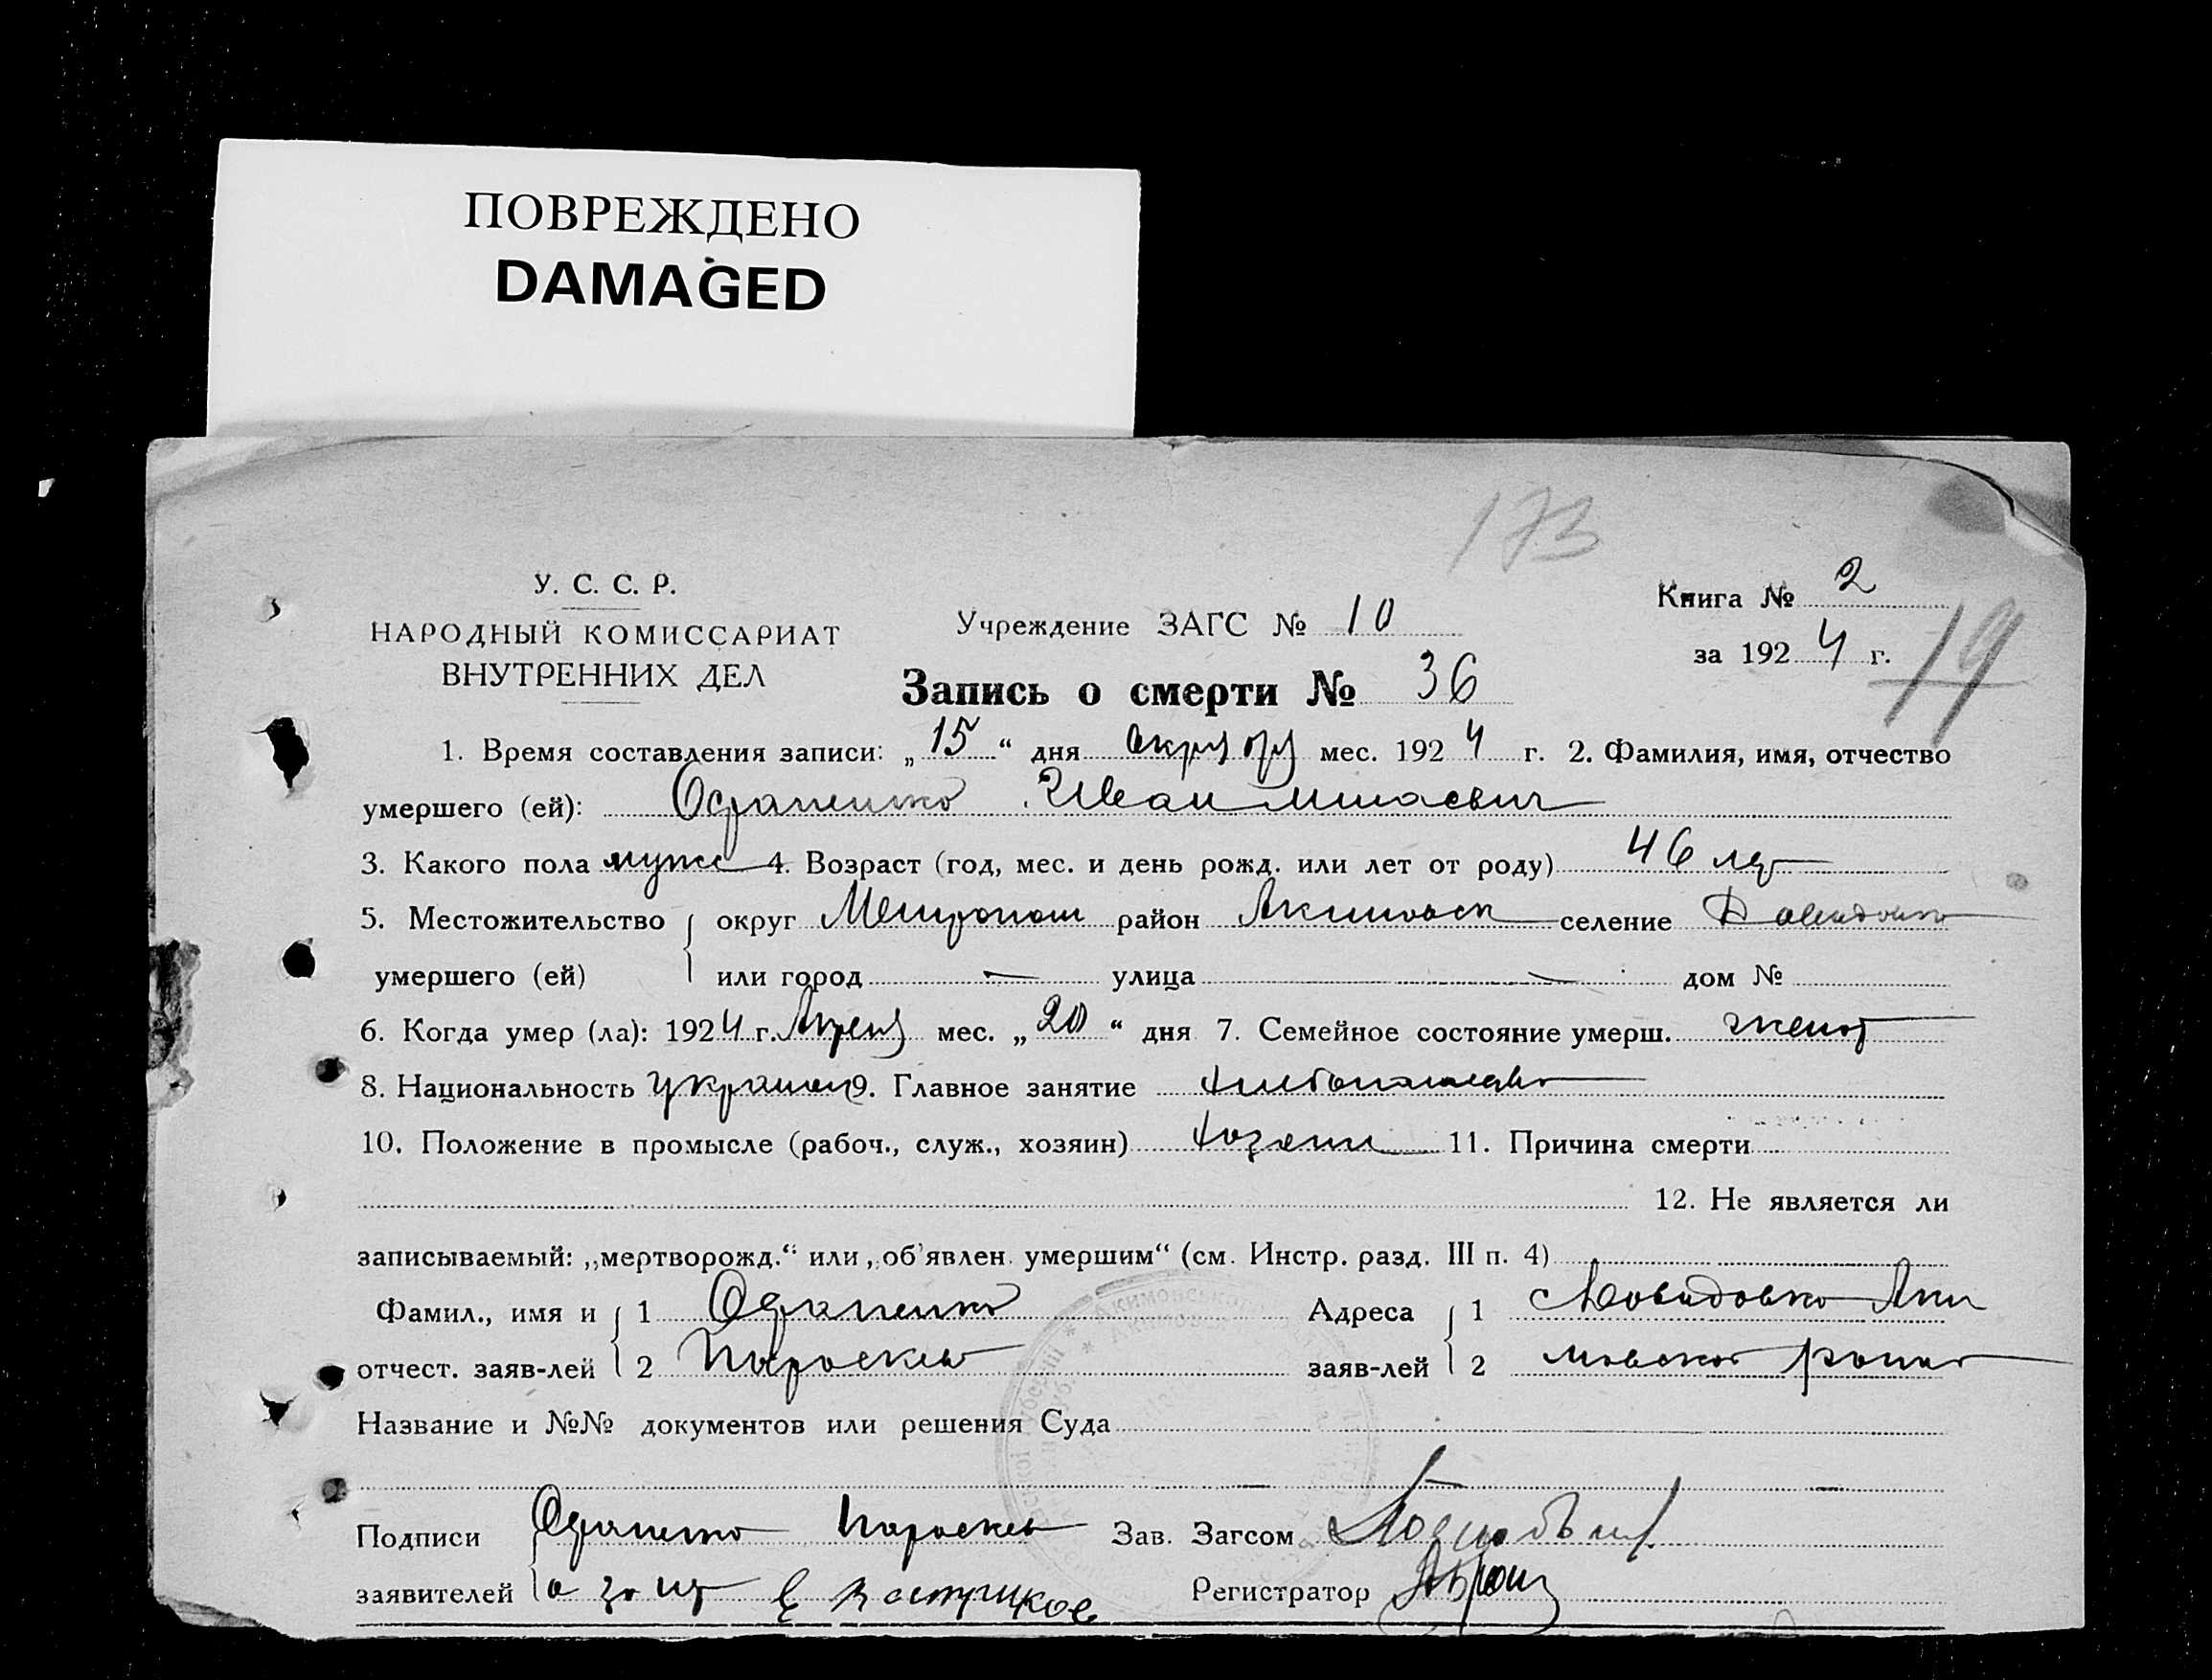 ПОВРЕЖДЕНО
DAMAGED
173
У. С. С. Р.
НАРОДНЫЙ КОМИССАРИАТ
ВНУТРЕННИХ ДЕЛ
Учреждение ЗАГС № 10
Книга № 2
за 1924 г.
19
Запись о смерти № 36
1. Время составления записи: „15“ дня мес. 1924 г. 2. Фамилия, имя, отчество
умершего (ей): Иван
3. Какого пола муж 4. Возраст (год, мес. и день рожд. или лет от роду) 46 лет
5. Местожительство округ Мелитопол район Акимовск селение Давидовка
умершего (ей) или город — улица — дом №
6. Когда умер (ла): 1924 г. Апреля мес. „20“ дня 7. Семейное состояние умерш. женат
8. Национальность украинец 9. Главное занятие хлебопашество
10. Положение в промысле (рабоч., служ., хозяин) хозяин 11. Причина смерти
12. Не является ли
записываемый: „мертворожд.“ или „об'явлен умершим“ (см. Инстр. разд. III п. 4)
Фамил., имя и 1 Адреса 1 Давидовка Аки
отчест. заяв-лей 2 Параскева заяв-лей 2 мовского района
Название и №№ документов или решения Суда
Подписи Параскева Зав. Загсом
заявителей а за Регистратор